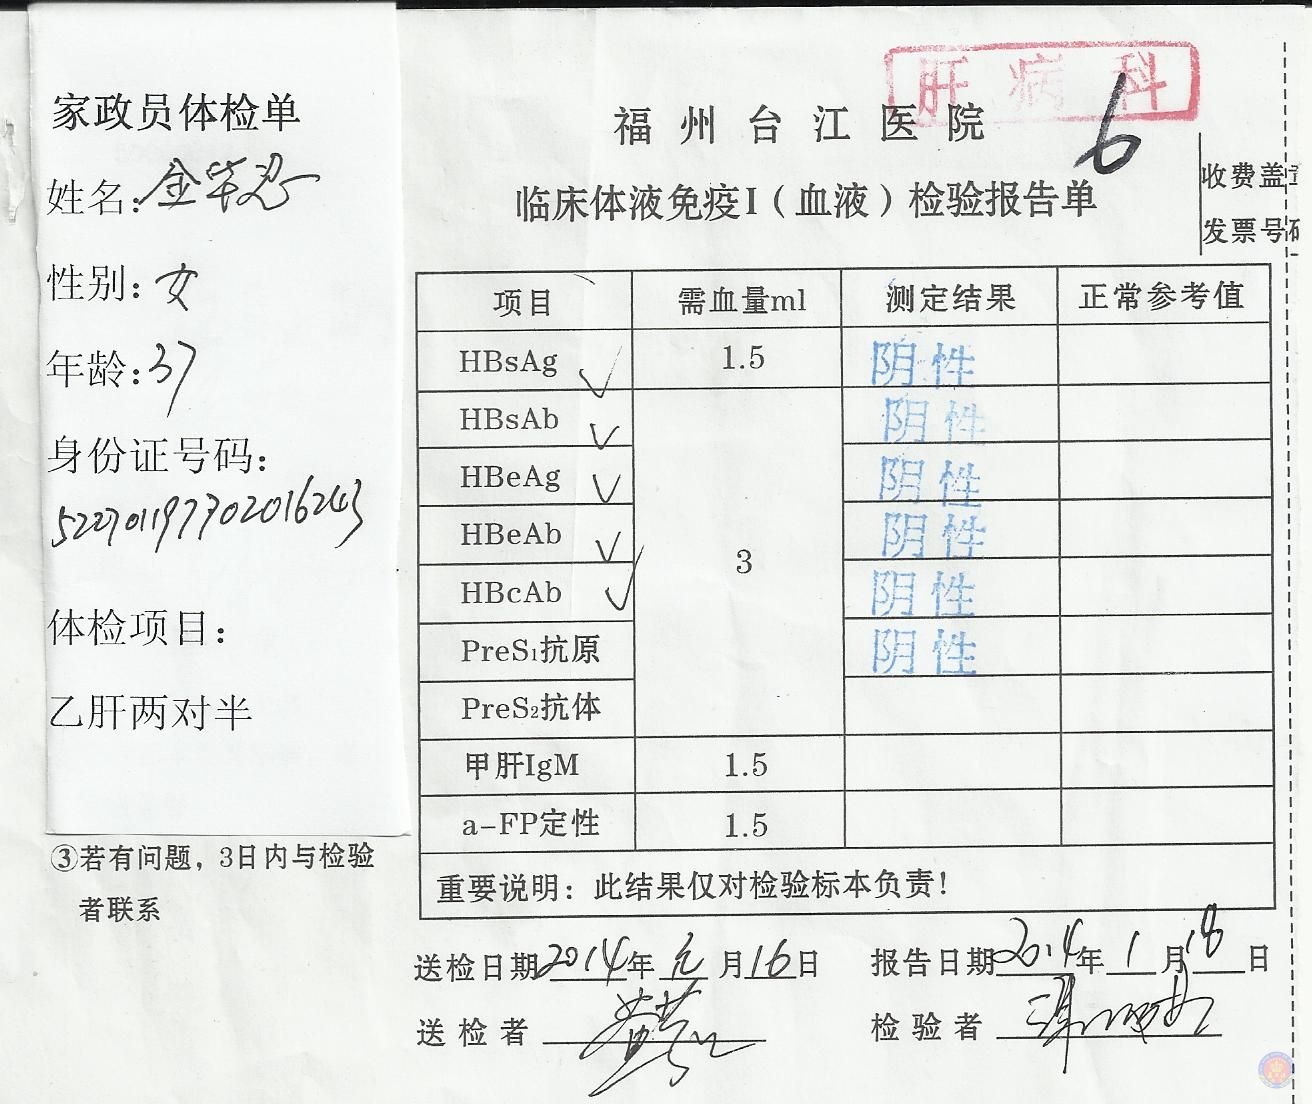 家政员体检单
姓名:金华忍
性别:女
年龄:37
身份证号码:
522701197702016243
体检项目:
乙肝两对半
③若有问题，3日内与检验
者联系
肝病科
6
福州台江医院
临床体液免疫I（血液）检验报告单
收费盖章
发票号码
项目 需血量ml 测定结果 正常参考值
HBsAg 1.5 阴性
HBsAb 阴性
HBeAg 阴性
HBeAb 3 阴性
HBcAb 阴性
PreS₁抗原 阴性
PreS₂抗体
甲肝IgM 1.5
a-FP定性 1.5
重要说明：此结果仅对检验标本负责！
送检日期2014年元月16日 报告日期2014年1月18日
送检者 检验者